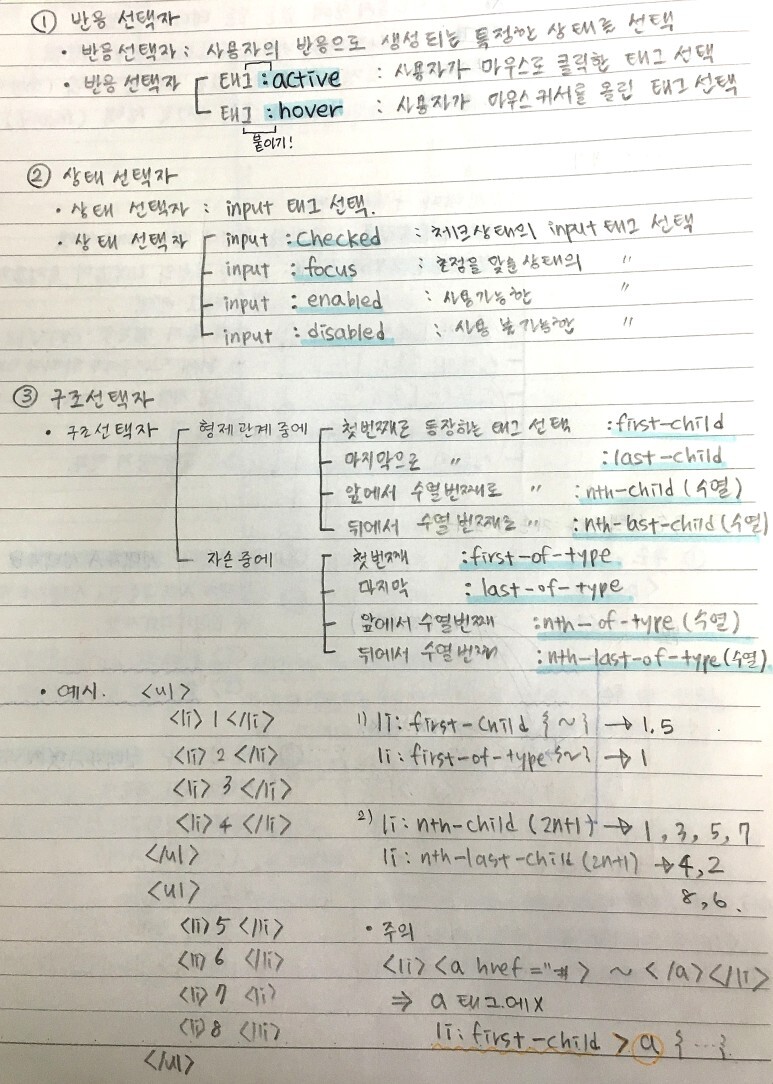 ① 반응 선택자
• 반응선택자 : 사용자의 반응으로 생성되는 특정한 상태를 선택
• 반응 선택자 태그 :active : 사용자가 마우스로 클릭한 태그 선택
태그 :hover : 사용자가 마우스 커서를 올린 태그 선택
붙이기!
② 상태 선택자
• 상태 선택자 : input 태그 선택.
• 상태 선택자 input :checked : 체크상태의 input 태그 선택
input :focus : 초점을 맞춘 상태의 〃
input :enabled : 사용가능한 〃
input :disabled : 사용 불가능한 〃
③ 구조선택자
• 구조선택자 형제 관계 중에 첫번째로 등장하는 태그 선택 :first-child
마지막으로 〃 :last-child
앞에서 수열번째로 〃 :nth-child(수열)
뒤에서 수열번째로 〃 :nth-last-child(수열)
자손 중에 첫번째 :first-of-type
마지막 :last-of-type
앞에서 수열번째 :nth-of-type(수열)
뒤에서 수열번째 :nth-last-of-type(수열)
• 예시. <ul>
<li> 1 </li> 1) li:first-child {~} → 1.5
<li> 2 </li> li:first-of-type{~} → 1
<li> 3 </li>
<li> 4 </li> 2) li:nth-child (2n+1) → 1, 3, 5, 7
</ul> li:nth-last-child(2n+1) → 4, 2
<ul> 8, 6.
<li> 5 </li> • 주의
<li> 6 </li> <li><a href="#> ~ </a></li>
<li> 7 <li> ⇒ a 태그에X
<li> 8 </li> li:first-child > a { … }
</ul>